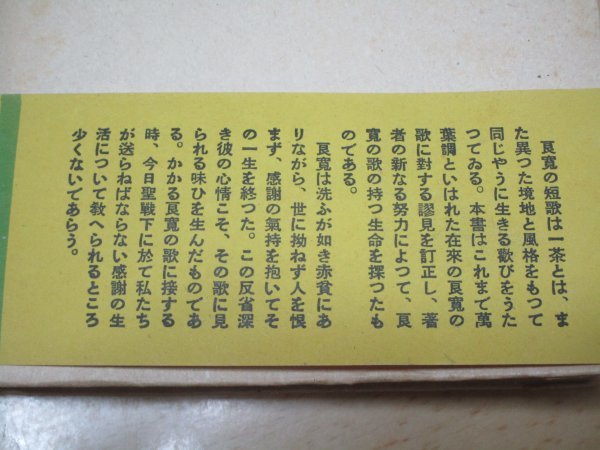 良寛の短歌は一茶とは、ま
た異つた境地と風格をもつて
同じやうに生きる歡びをうた
つてゐる。本書はこれまで萬
葉調といはれた在來の良寛の
歌に對する謬見を訂正し、著
者の新なる努力によつて、良
寛の歌の持つ生命を探つたも
のである。
良寛は洗ふが如き赤貧にあ
りながら、世に拗ねず人を恨
まず、感謝の氣持を抱いてそ
の一生を終つた。この反省深
き彼の心情こそ、その歌に見
られる味ひを生んだものであ
る。かかる良寛の歌に接する
時、今日聖戰下に於て私たち
が送らねばならない感謝の生
活について敎へられるところ
少くないであらう。